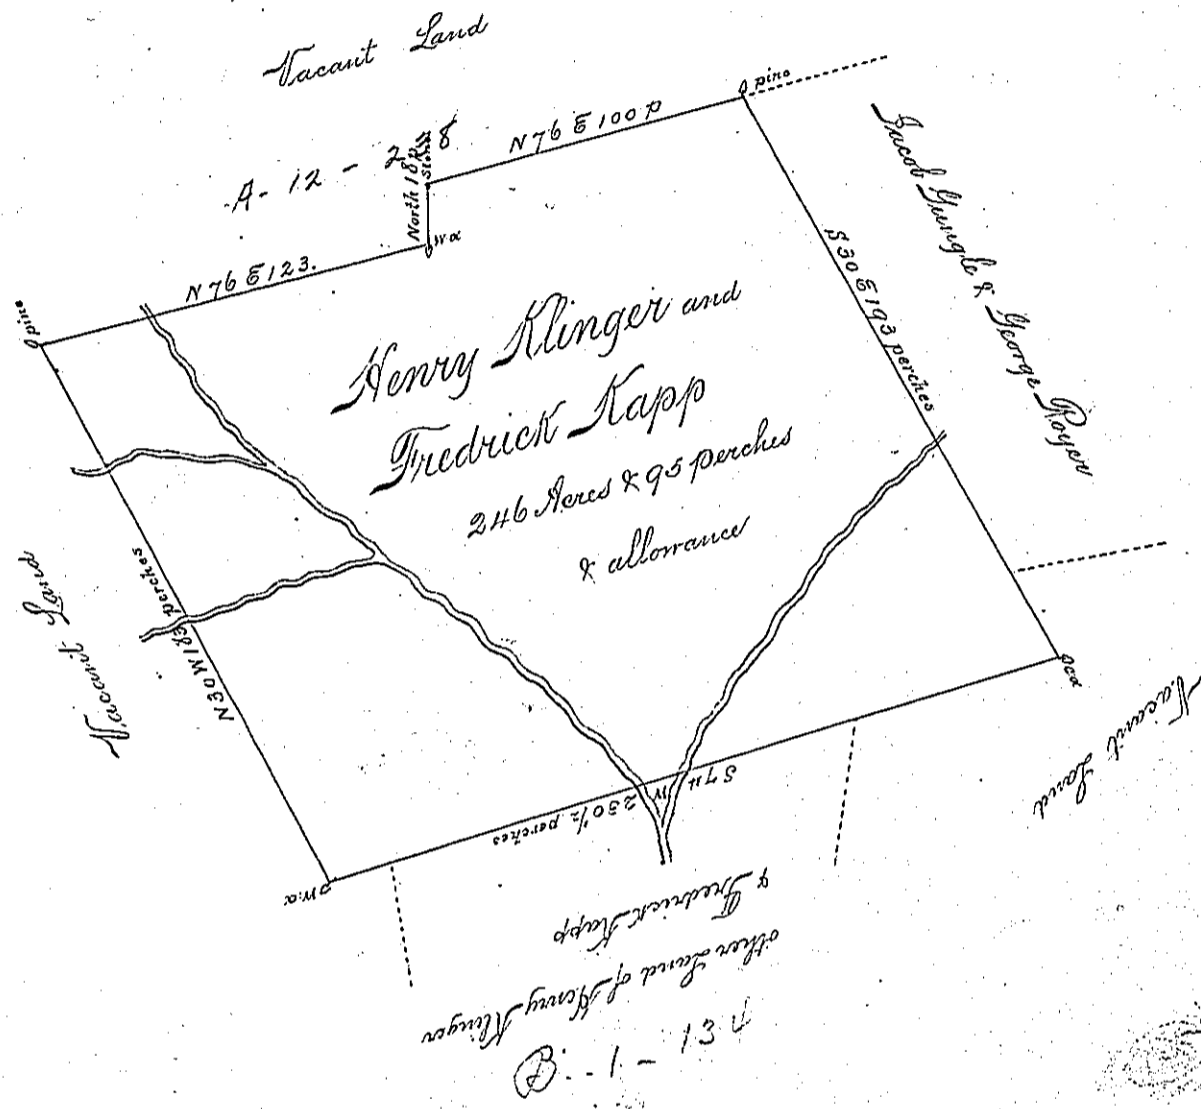 Vacant Land
A-12-228
N 76 E 100 P
pine
North 18 P
Stones
wo
N 76 E 123.
pine
Jacob Gungle & George Royer
S 30 E 193 perches
Henry Klinger and
Fredrick Kapp
246 Acres & 95 perches
& allowance
Vacant Land
N 30 W 183 perches
Vacant Land
S 74 W
230 1/2 perches
w.o
& Fredrick Kapp
other Land of Henry Klinger